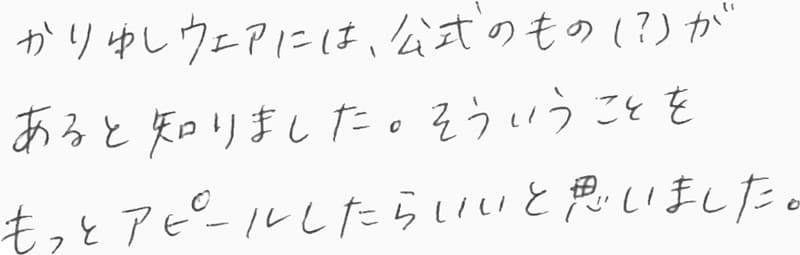 かりゆしウェアには、公式のもの(?)が
あると知りました。そういうことを
もっとアピールしたらいいと思いました。